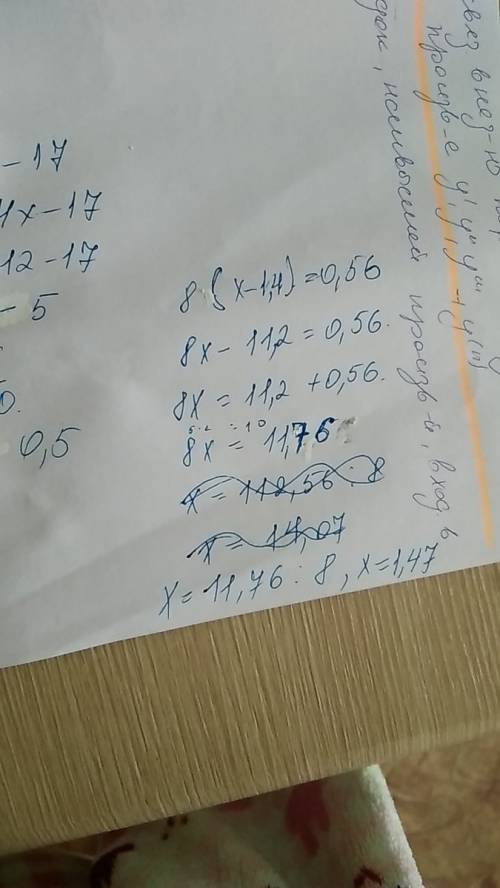 - 17
4x - 17
12 - 17
- 5
0.
0,5
8 (x-1,4) = 0,56
8x - 11,2 = 0,56.
8x = 11,2 + 0,56.
8x = 11,76
x = 112,56 : 8
x = 14,07
x = 11,76 : 8, x = 1,47
произв-е y', y'', y''',
наивысшей произв-й, вход в